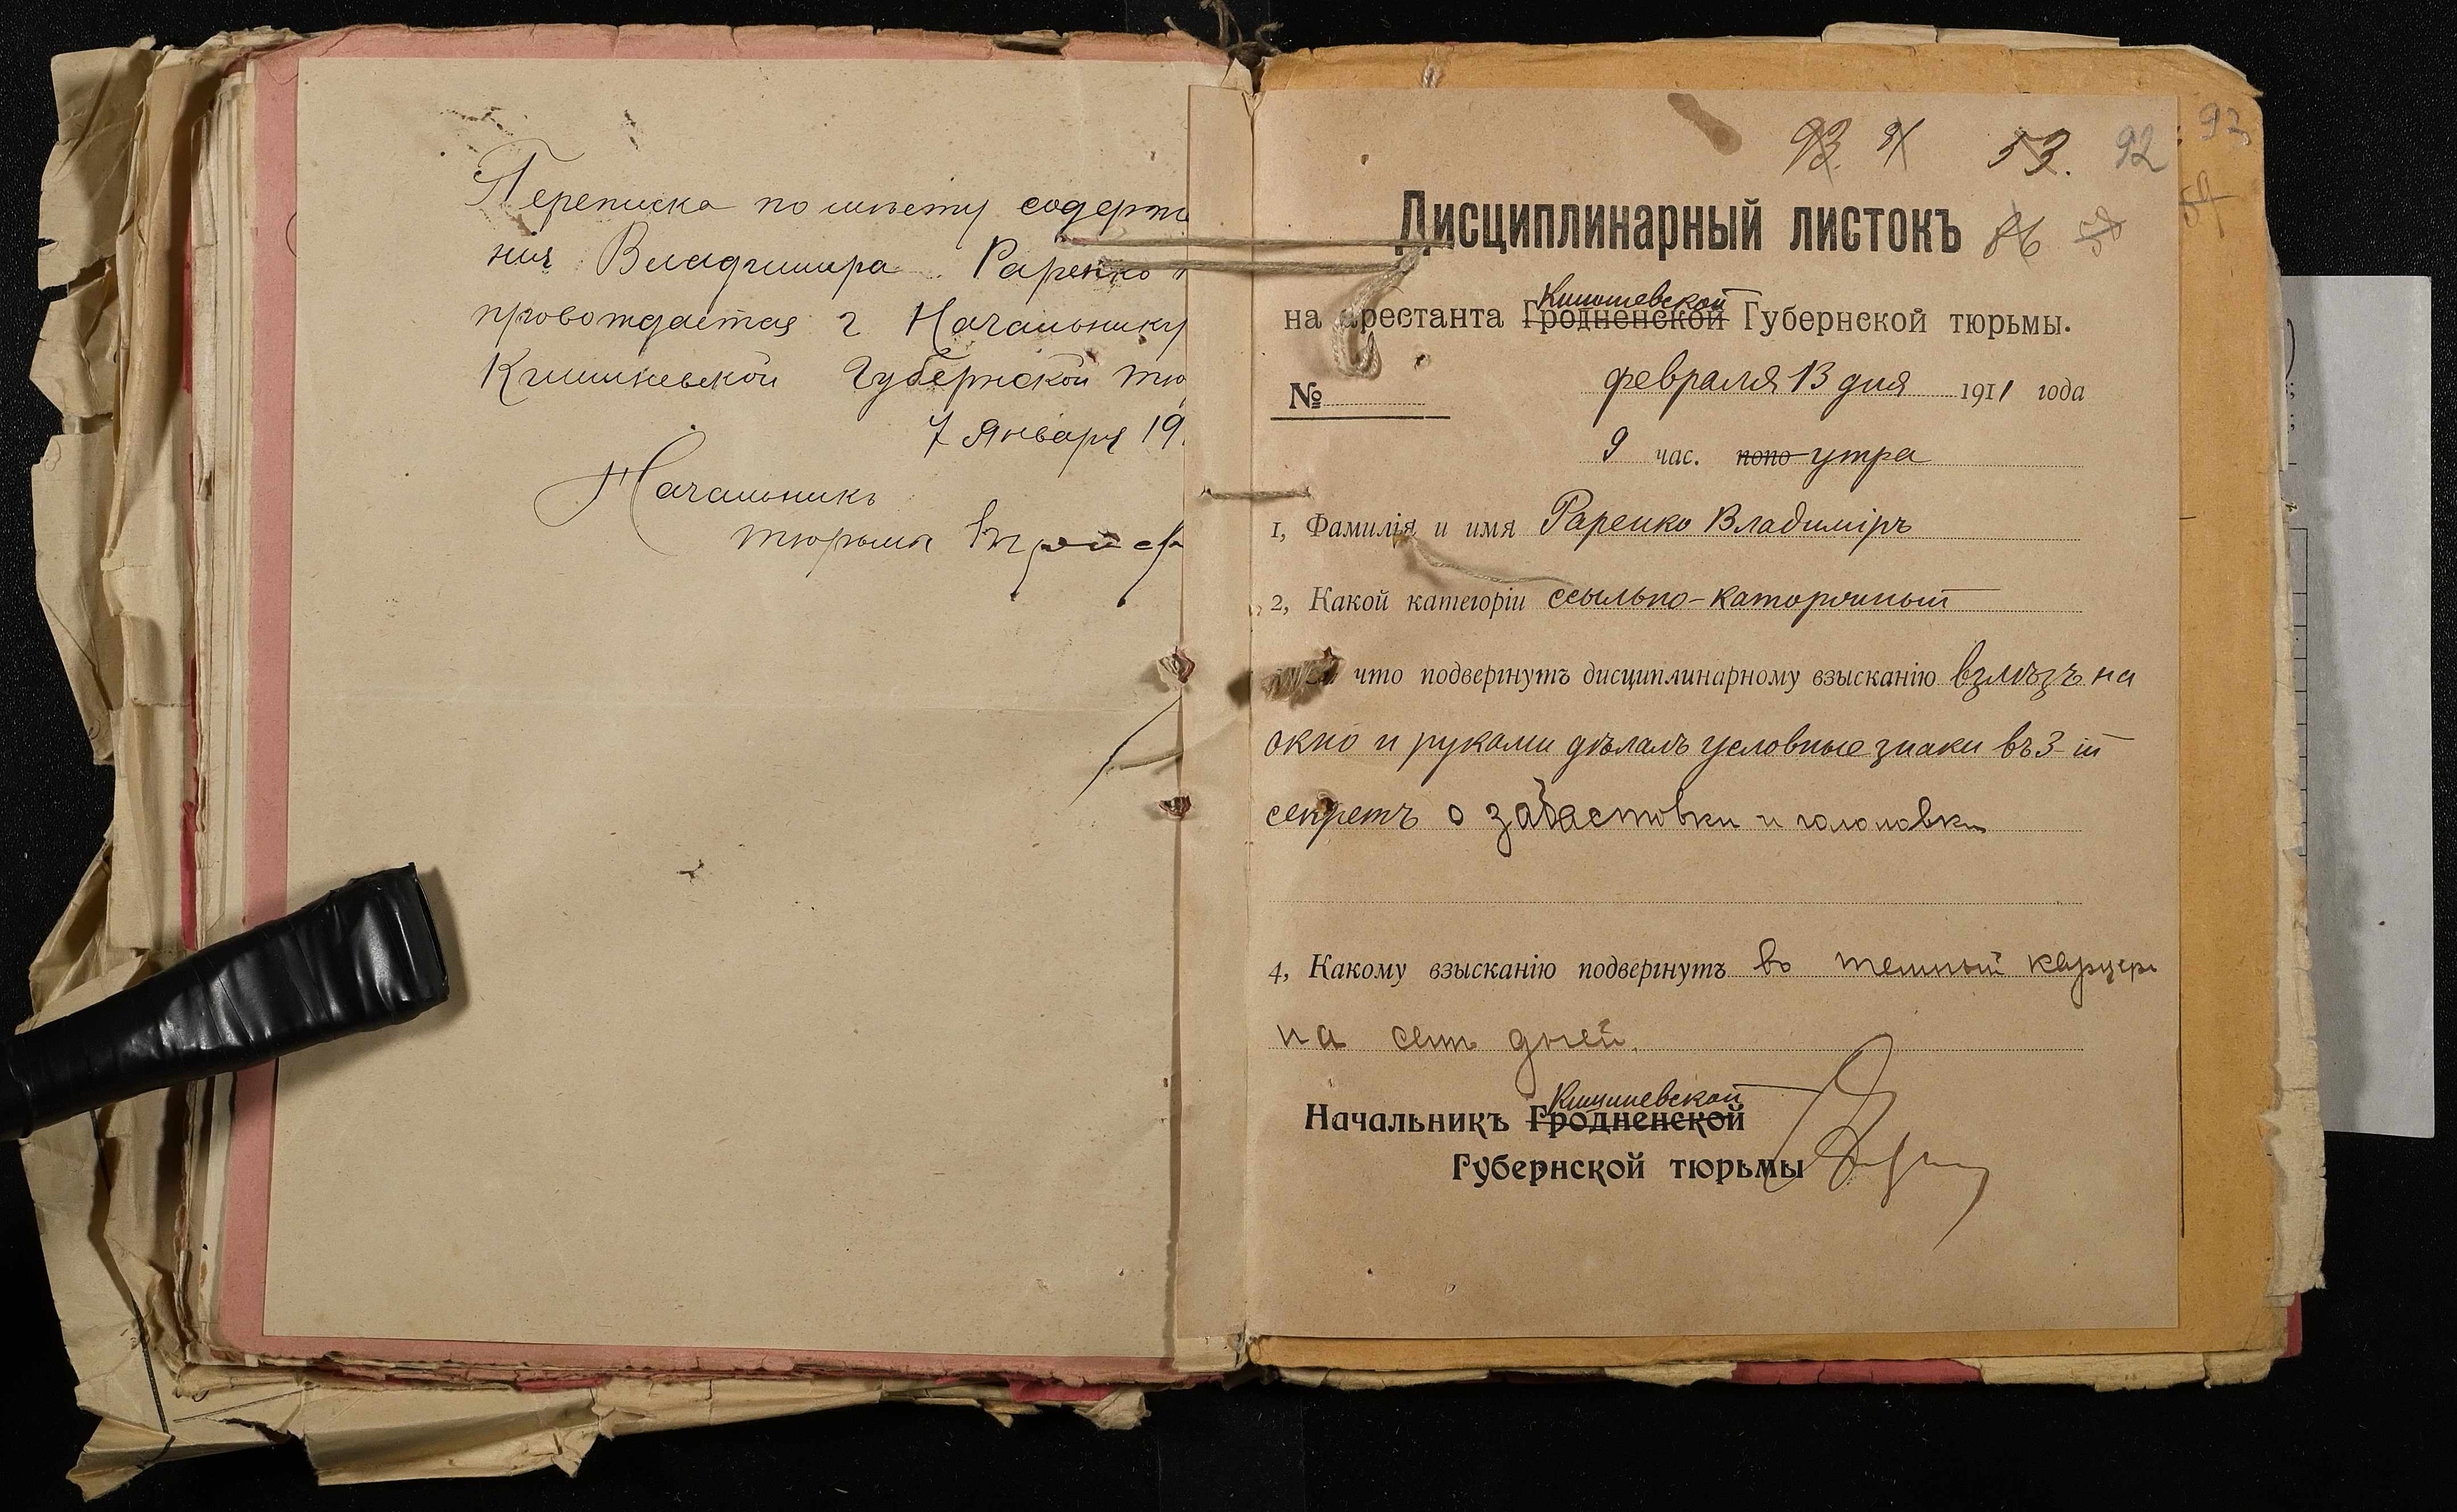 Переписка по мѣсту содержа
нія Владиміра Раренко
провождается г Начальнику
Кишиневской Губернской тю
7 Января 19
Начальникъ
тюрьмы
93. 91 53. 92 93
Дисциплинарный листокъ 86 58 54
Кишиневской
на арестанта Гродненской Губернской тюрьмы.
№ февраля 13 дня 1911 года
9 час. попо утра
1, Фамилія и имя Раренко Владиміръ
2, Какой категоріи ссыльно-каторжный
что подвергнутъ дисциплинарному взысканію взлѣзъ на
окно и руками дѣлалъ условные знаки въ 3-ій
секретъ о забастовки и голодовки
4, Какому взысканію подвергнутъ въ темный карцеръ
на семь дней.
Кишиневской
Начальникъ Гродненской
Губернской тюрьмы